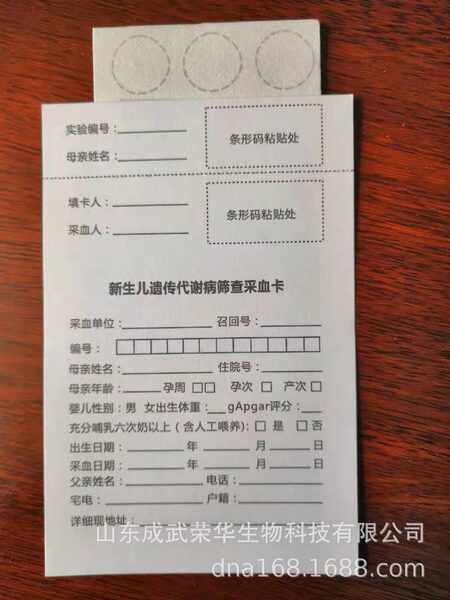 实验编号：
条形码粘贴处
母亲姓名：
填卡人：
条形码粘贴处
采血人：
新生儿遗传代谢病筛查采血卡
采血单位： 召回号：
编号：
母亲姓名： 住院号：
母亲年龄： 孕周 孕次 产次
婴儿性别：男 女出生体重： gApgar评分：
充分哺乳六次奶以上（含人工喂养）： 是 否
出生日期： 年 月 日
采血日期： 年 月 日
父亲姓名： 电话：
宅电： 户籍：
详细现地址：
山东成武荣华生物科技有限公司
dna168.1688.com